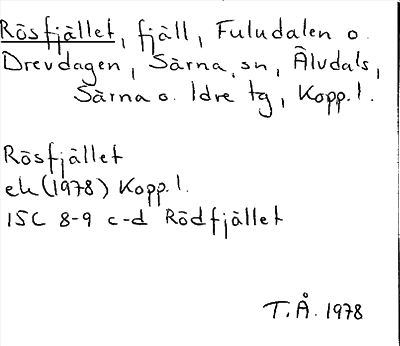 Rösfjället, fjäll, Fuludalen o.
Drevdagen, Särna sn, Älvdals,
Särna o. Idre tg, Kopp.l.
Rösfjället
ek(1978) Kopp.l.
15C 8-9 c-d Rödfjället
T.Å. 1978